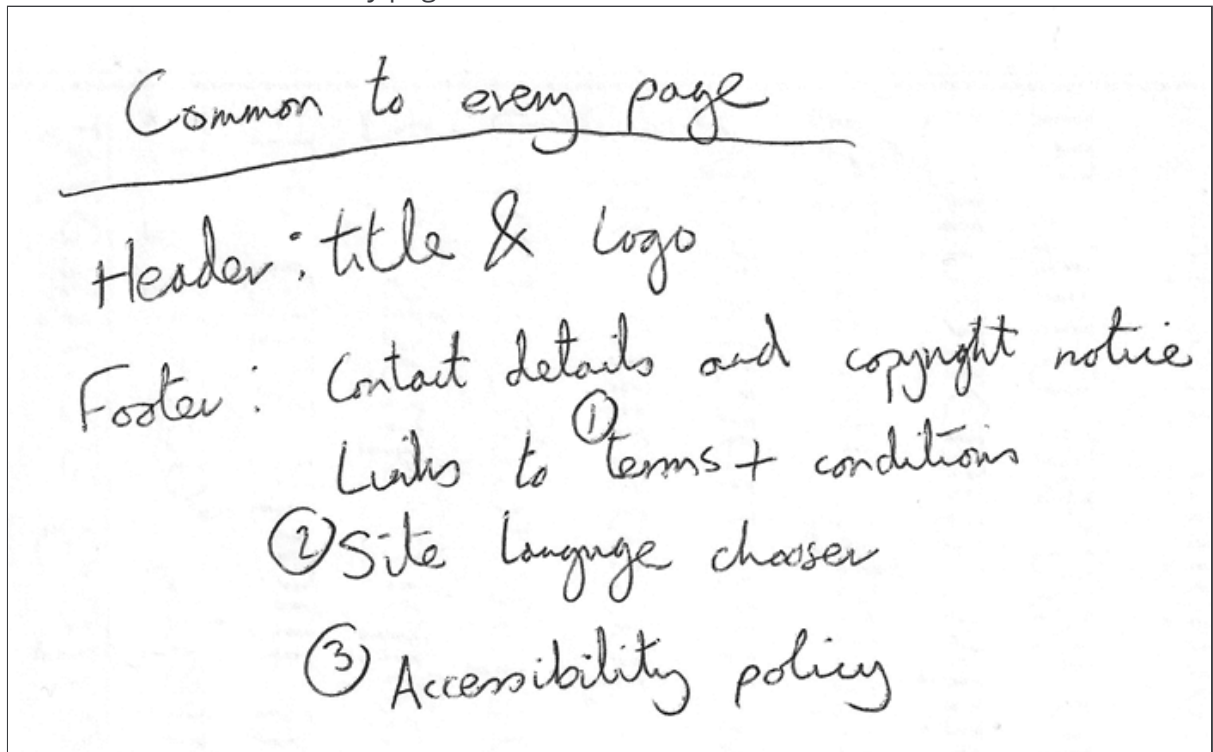 Common to every page
Header: title & logo
Footer: Contact details and copyright notice
Links to ① terms + conditions
② Site language chooser
③ Accessibility policy